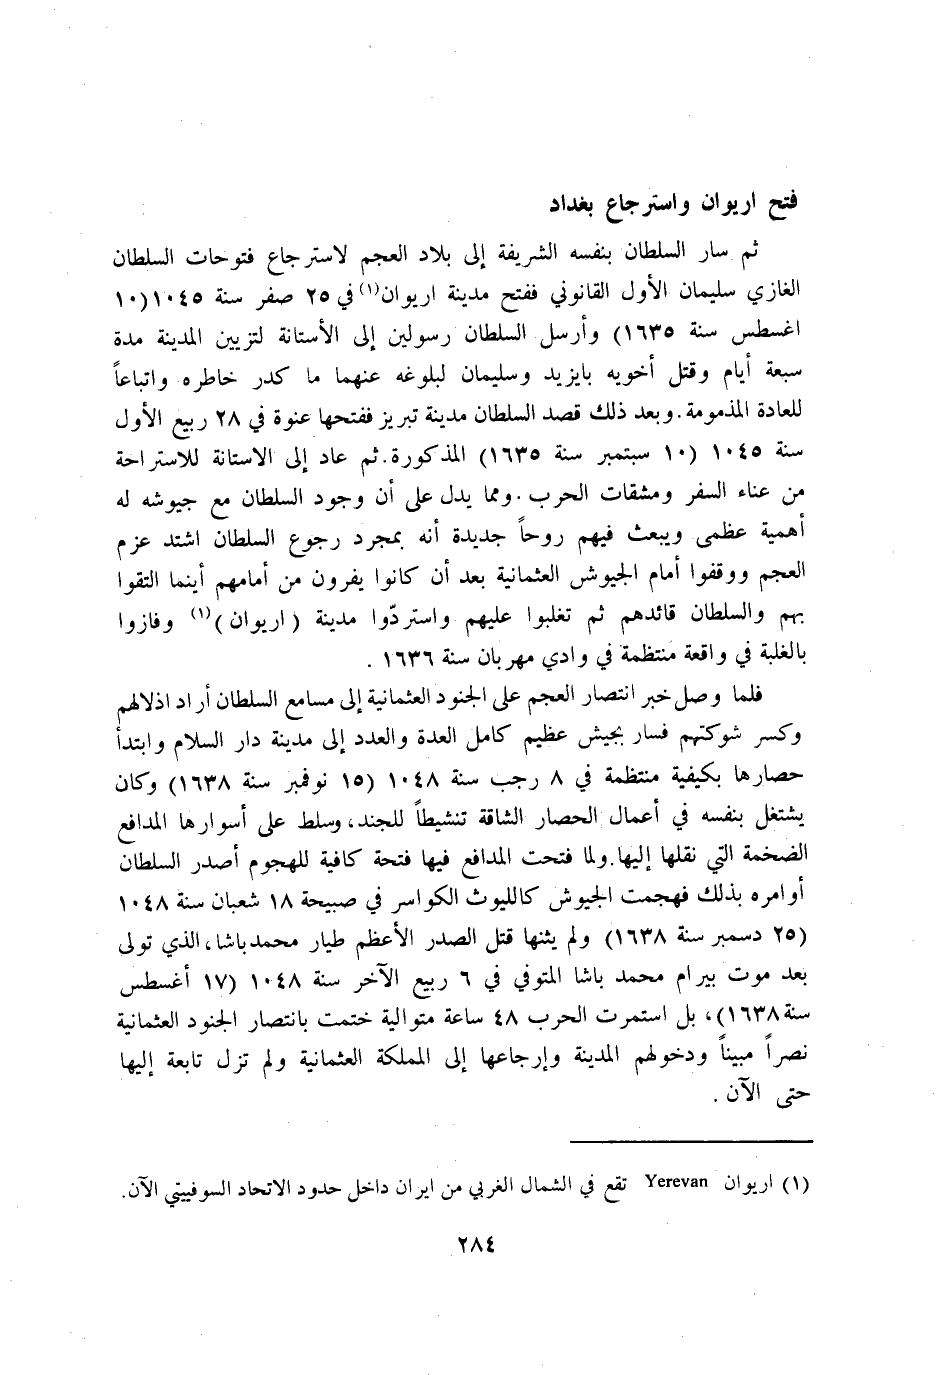 فتح اريوان واسترجاع بغداد
ثم سار السلطان بنفسه الشريفة إلى بلاد العجم لاسترجاع فتوحات السلطان
الغازي سليمان الأول القانوني ففتح مدينة اريوان(١) في ٢٥ صفر سنة ١٠٤٥ (١٠
اغسطس سنة ١٦٣٥) وأرسل السلطان رسولين إلى الأستانة لتزيين المدينة مدة
سبعة أيام وقتل أخويه بايزيد وسليمان لبلوغه عنهما ما كدر خاطره واتباعاً
للعادة المذمومة. وبعد ذلك قصد السلطان مدينة تبريز ففتحها عنوة في ٢٨ ربيع الأول
سنة ١٠٤٥ (١٠ سبتمبر سنة ١٦٣٥) المذكورة. ثم عاد إلى الاستانة للاستراحة
من عناء السفر ومشقات الحرب. ومما يدل على أن وجود السلطان مع جيوشه له
أهمية عظمى ويبعث فيهم روحاً جديدة أنه بمجرد رجوع السلطان اشتد عزم
العجم ووقفوا أمام الجيوش العثمانية بعد أن كانوا يفرون من أمامهم أينما التقوا
بهم والسلطان قائدهم ثم تغلبوا عليهم واستردّوا مدينة (اريوان)(١) وفازوا
بالغلبة في واقعة منتظمة في وادي مهربان سنة ١٦٣٦ .
فلما وصل خبر انتصار العجم على الجنود العثمانية إلى مسامع السلطان أراد اذلالهم
وكسر شوكتهم فسار بجيش عظيم كامل العدة والعدد إلى مدينة دار السلام وابتدأ
حصارها بكيفية منتظمة في ٨ رجب سنة ١٠٤٨ (١٥ نوفمبر سنة ١٦٣٨) وكان
يشتغل بنفسه في أعمال الحصار الشاقة تنشيطاً للجند، وسلط على أسوارها المدافع
الضخمة التي نقلها إليها. ولما فتحت المدافع فيها فتحة كافية للهجوم أصدر السلطان
أوامره بذلك فهجمت الجيوش كالليوث الكواسر في صبيحة ١٨ شعبان سنة ١٠٤٨
(٢٥ دسمبر سنة ١٦٣٨) ولم يثنها قتل الصدر الأعظم طيار محمد باشا، الذي تولى
بعد موت بيرام محمد باشا المتوفي في ٦ ربيع الآخر سنة ١٠٤٨ (١٧ أغسطس
سنة ١٦٣٨)، بل استمرت الحرب ٤٨ ساعة متوالية ختمت بانتصار الجنود العثمانية
نصراً مبيناً ودخولهم المدينة وإرجاعها إلى المملكة العثمانية ولم تزل تابعة إليها
حتى الآن .
(١) اريوان Yerevan تقع في الشمال الغربي من ايران داخل حدود الاتحاد السوفييتي الآن.
٢٨٤